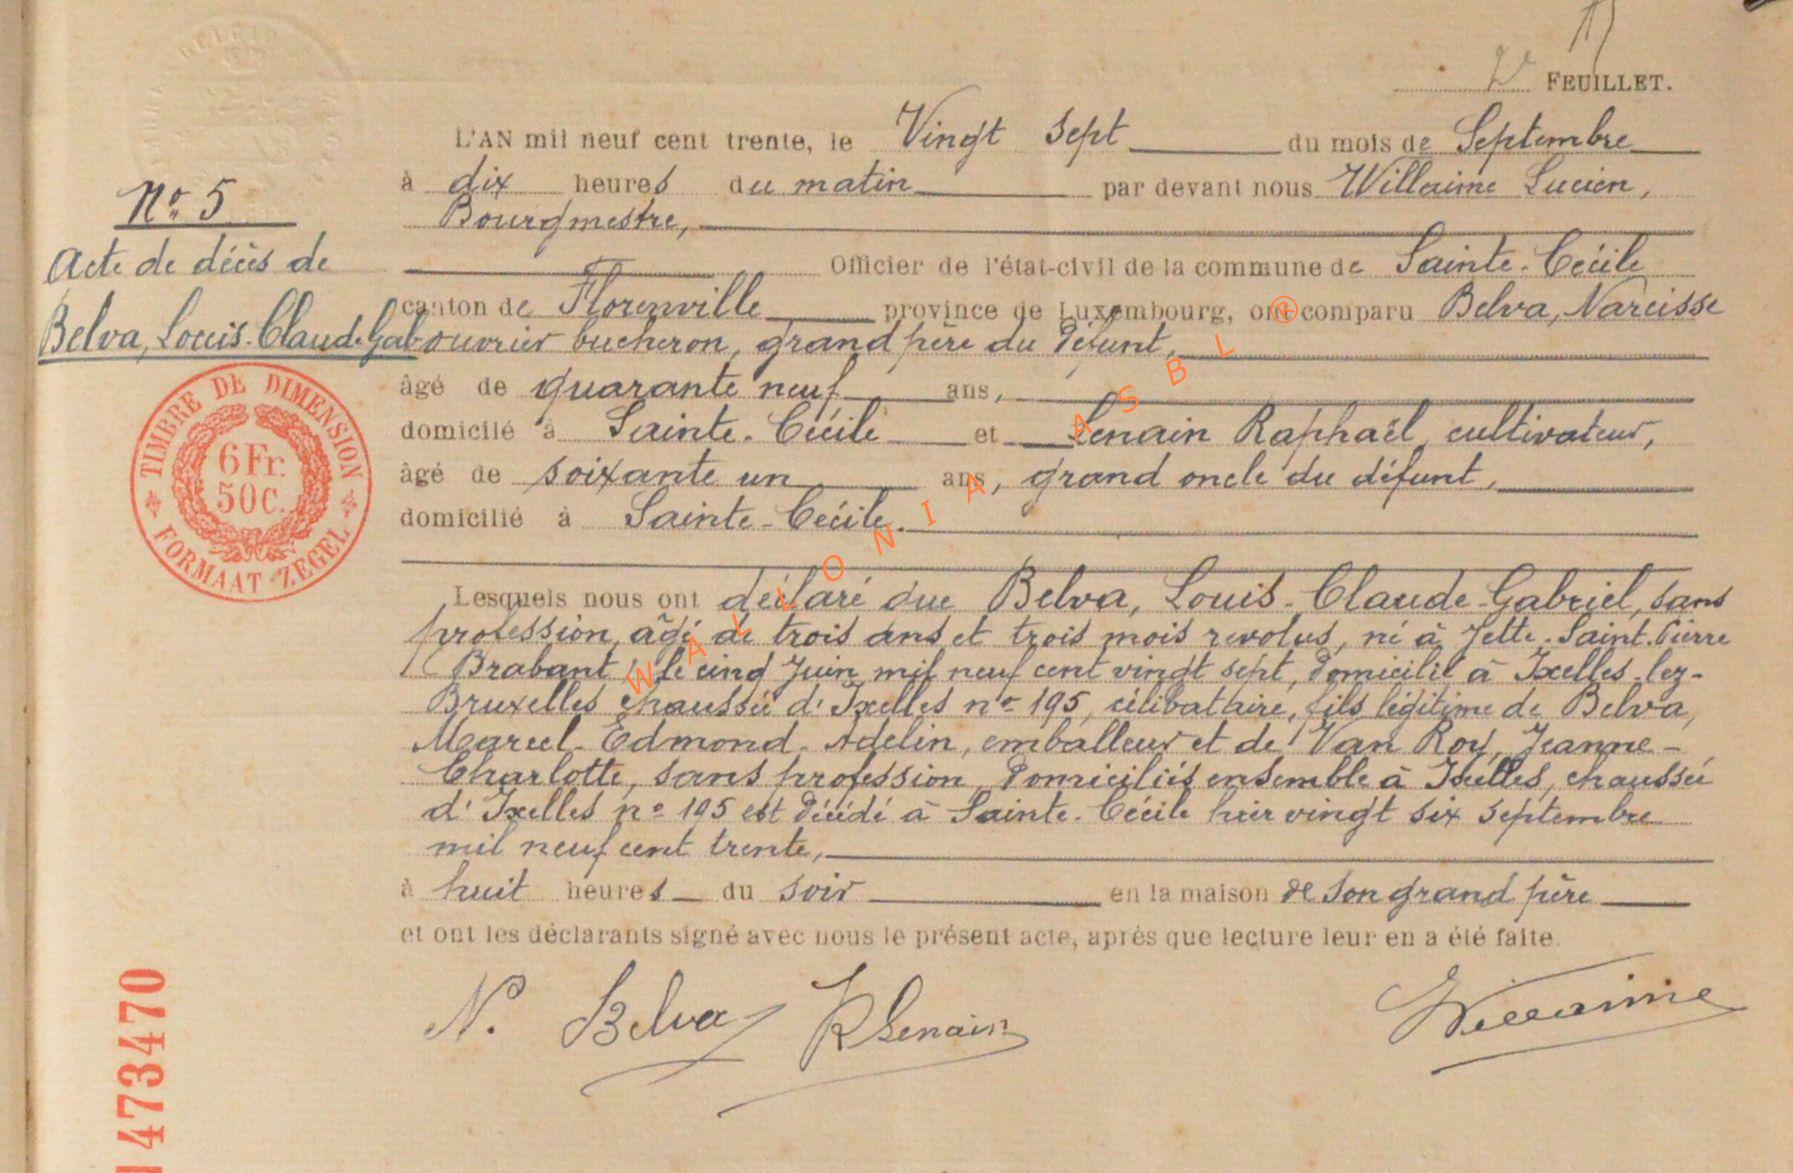 2e FEUILLET.
L'AN mil neuf cent trente, le Vingt sept du mois de Septembre
à dix heures du matin par devant nous Willaime Lucien,
Bourgmestre,
Officier de l'état-civil de la commune de Sainte-Cécile
canton de Florenville province de Luxembourg, ont comparu Belva, Narcisse
ouvrier bucheron, grand père du défunt,
âgé de quarante neuf ans,
domicilé à Sainte-Cécile et Lenain Raphaël, cultivateur,
âgé de soixante un ans, grand oncle du défunt,
domicilié à Sainte-Cécile.
Lesquels nous ont déclaré que Belva, Louis-Claude-Gabriel, sans
profession, âgé de trois ans et trois mois revolus, né à Jette-Saint-Pierre
(Brabant) le cinq Juin mil neuf cent vingt sept, domicilié à Ixelles-lez-
Bruxelles chaussée d'Ixelles no 195, célibataire, fils légitime de Belva,
Marcel-Edmond-Adelin, emballeur et de Van Roy, Jeanne-
Charlotte, sans profession, domiciliés ensemble à Ixelles, chaussée
d'Ixelles no 195 est décédé à Sainte-Cécile hier vingt six septembre
mil neuf cent trente,
à huit heures du soir en la maison de son grand père
et ont les déclarants signé avec nous le présent acte, après que lecture leur en a été faite.
N. Belva RLenain Willaime
No 5
Acte de décès de
Belva, Louis-Claude-Gab
TIMBRE DE DIMENSION
6 Fr.
50 C.
FORMAAT ZEGEL
1473470
WALLONIA ASBL ®